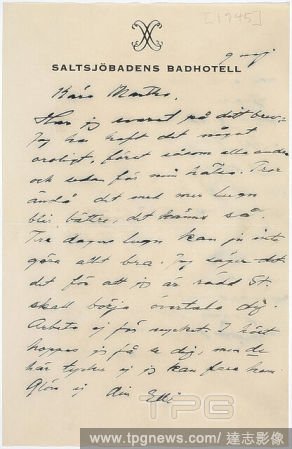 [1945]
9 maj
SALTSJÖBADENS BADHOTELL
Kära Martha.
Har jag svarat på ditt brev.
Jag har haft det något
oroligt, först såsom alla andra
och sedan för min hälsa. Tror
ändå det med mer lugn
blir bättre, det känns så.
Tre dagars lugn kan ju inte
göra allt bra. Jag säger det
det för att jag är rädd St.
skall börja övertala dig.
Arbeta ej för mycket. I höst
hoppas jag få se dig, men de
här tycker ej jag kan fara hem.
Glöm ej Din Elli
TPG
www.tpgnews.com / 達志影像